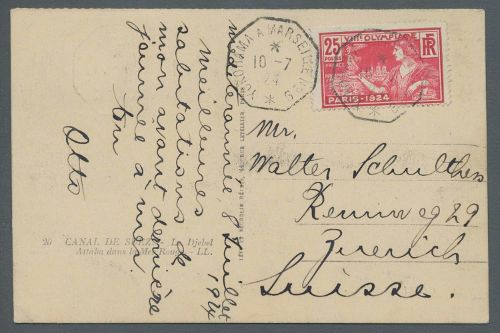 YOKOHAMA A MARSEILLE No 5
*
10 - 7
24
*
25c
VIIIe OLYMPIADE
RF
POSTES
FRANCE
PARIS-1924
Méditerranée, 8 Juillet
1924
Meilleures
salutations de
mon avant dernière
journée à
bord
Otto
Mr.
Walter Schulthess
Rennweg 29
Zuerich
Suisse.
20 CANAL DE SUEZ - Le Djebel
Attaka dans la Mer Rouge - LL.